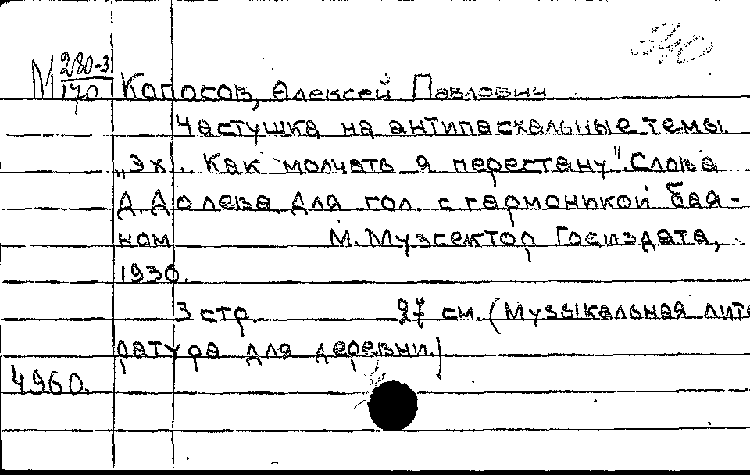 М 280-3
170
Колосов, Алексей Павлович
Частушка на антипасхальные темы.
„Эх.. как молчать я перестану". Слова
Д. Долева для гол. с гармоникой бая-
ном М. Музсектор Госиздата,
1930.
3 стр. 27 см. (Музыкальная лите
ратура для деревни.)
4960.